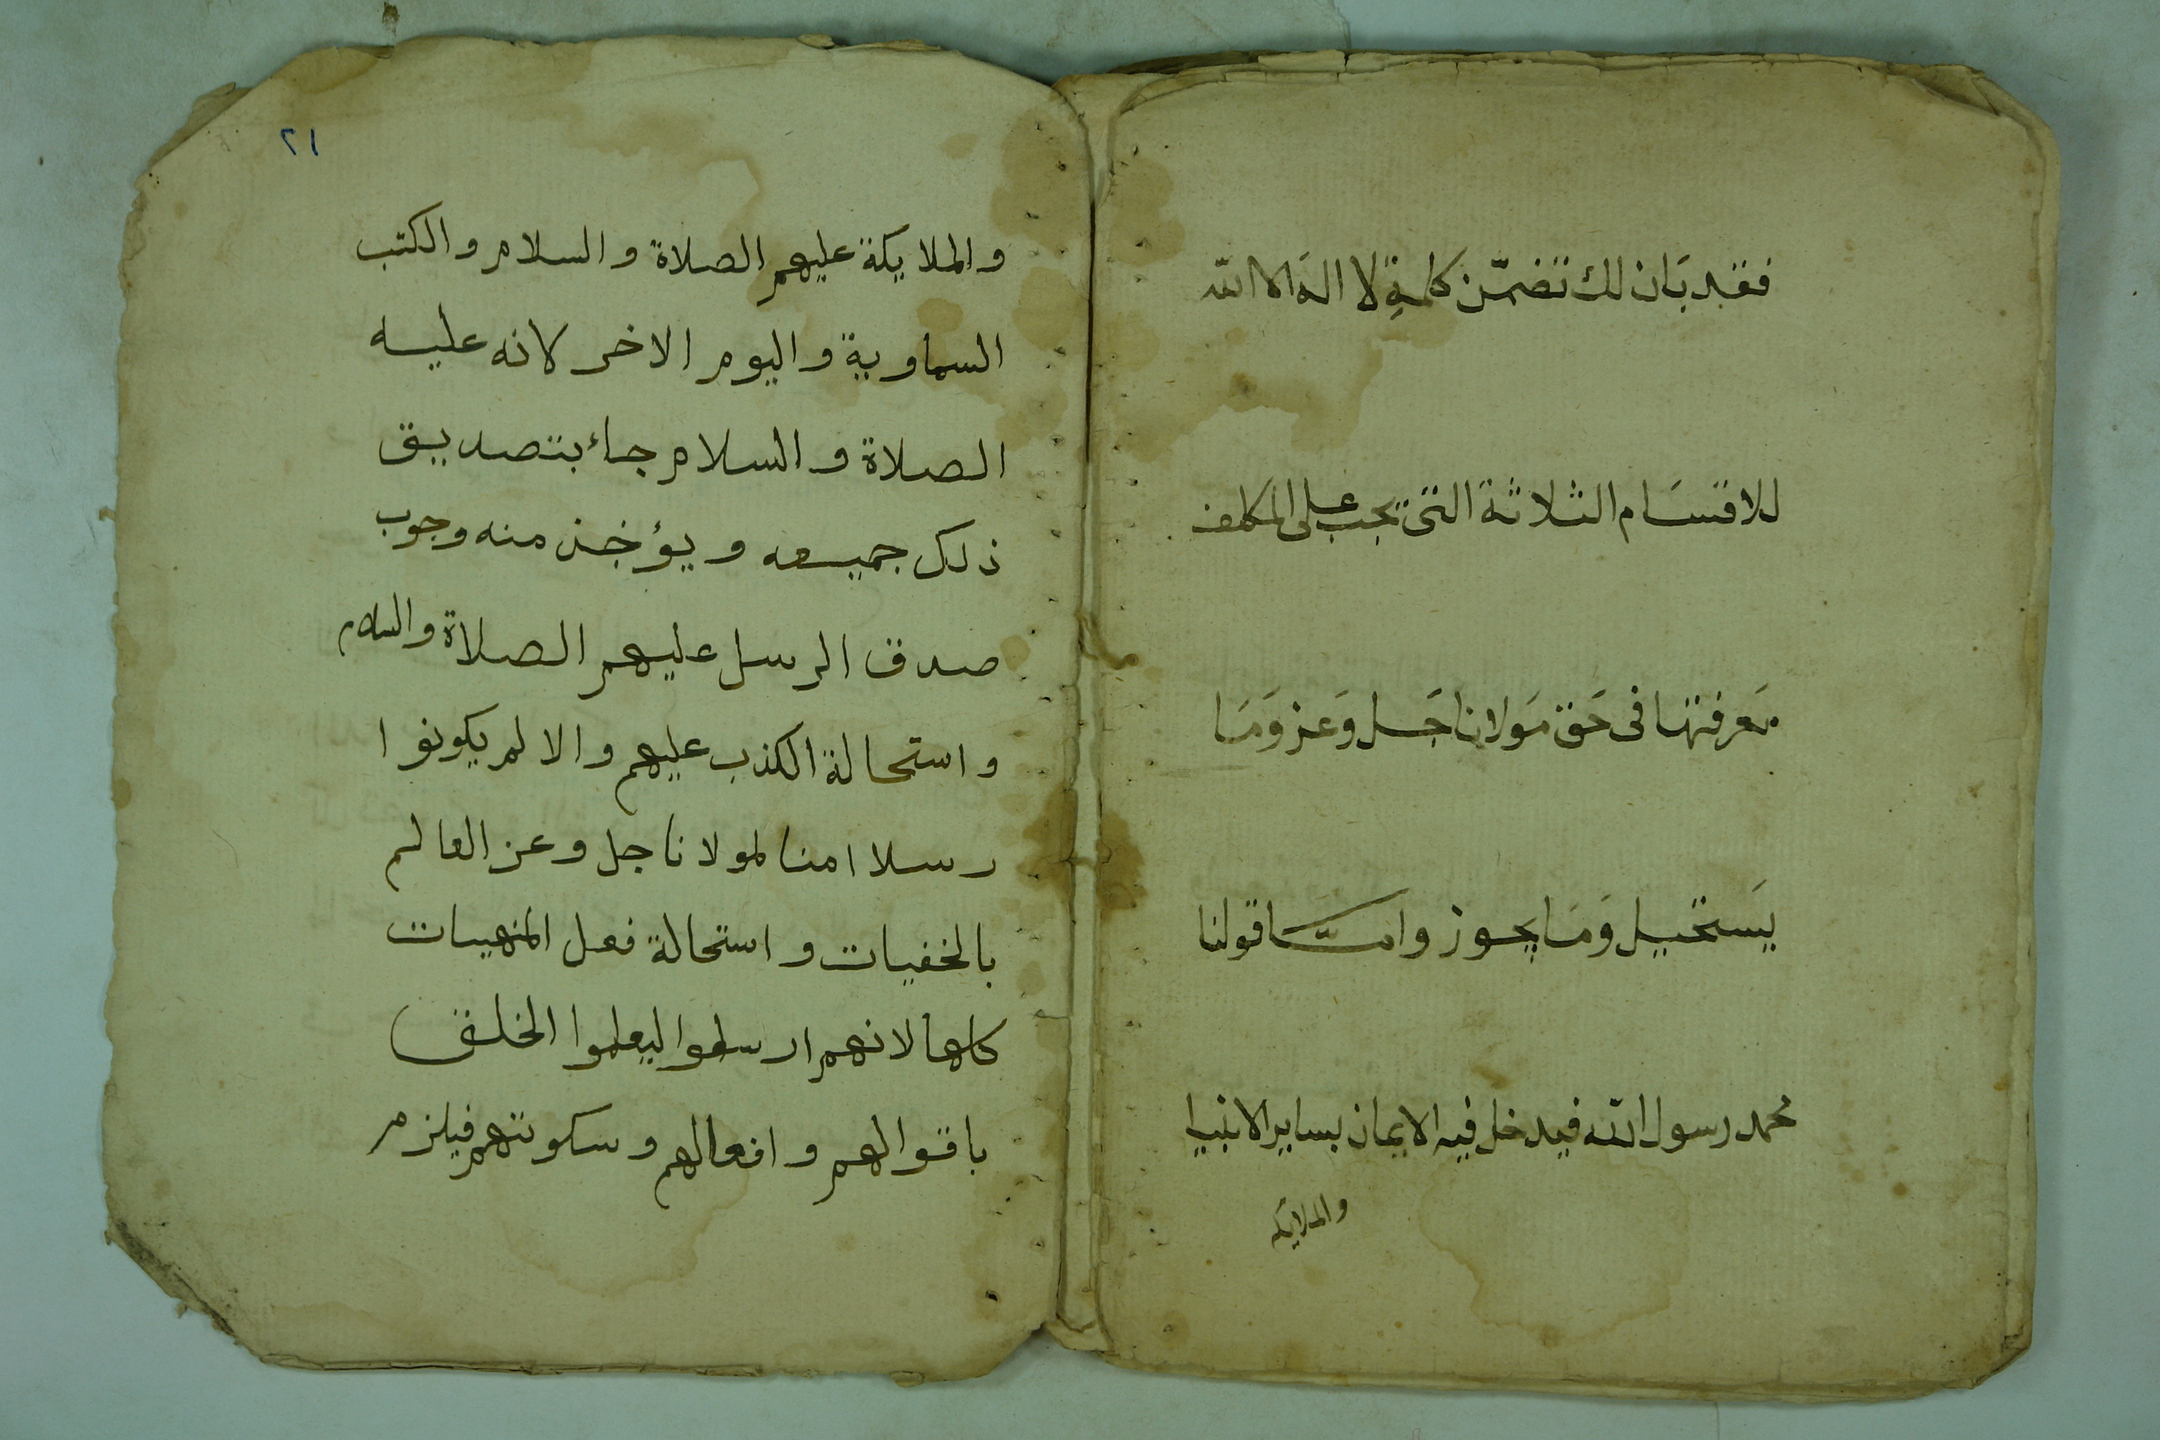 فقد بَان لك تضمّن كلمةِ لا الهَ الا الله
للاقسَام الثلاثة التى يجب على المكلف
مَعرفتها فى حَق مَولانا جَل وَعز وَمَا
يَستحيل وَمَا يجوز وامَّا قولنا
محمد رسول الله فيدخل فيه الايمان بساير الانبيا
والملايكة
٢١
والملايكة عليهم الصلاة والسلام والكتب
السماوية واليوم الاخر لانه عليه
الصلاة والسلام جاء بتصديق
ذلك جميعه ويؤخذ منه وجوب
صدق الرسل عليهم الصلاة والسلام
واستحالة الكذب عليهم والا لم يكونوا
رسلا امنا لمولانا جل وعز العالم
بالخفيات واستحالة فعل المنهيات
كلها لانهم ارسلوا ليعلموا الخلق
باقوالهم وافعالهم وسكوتهم فيلزم